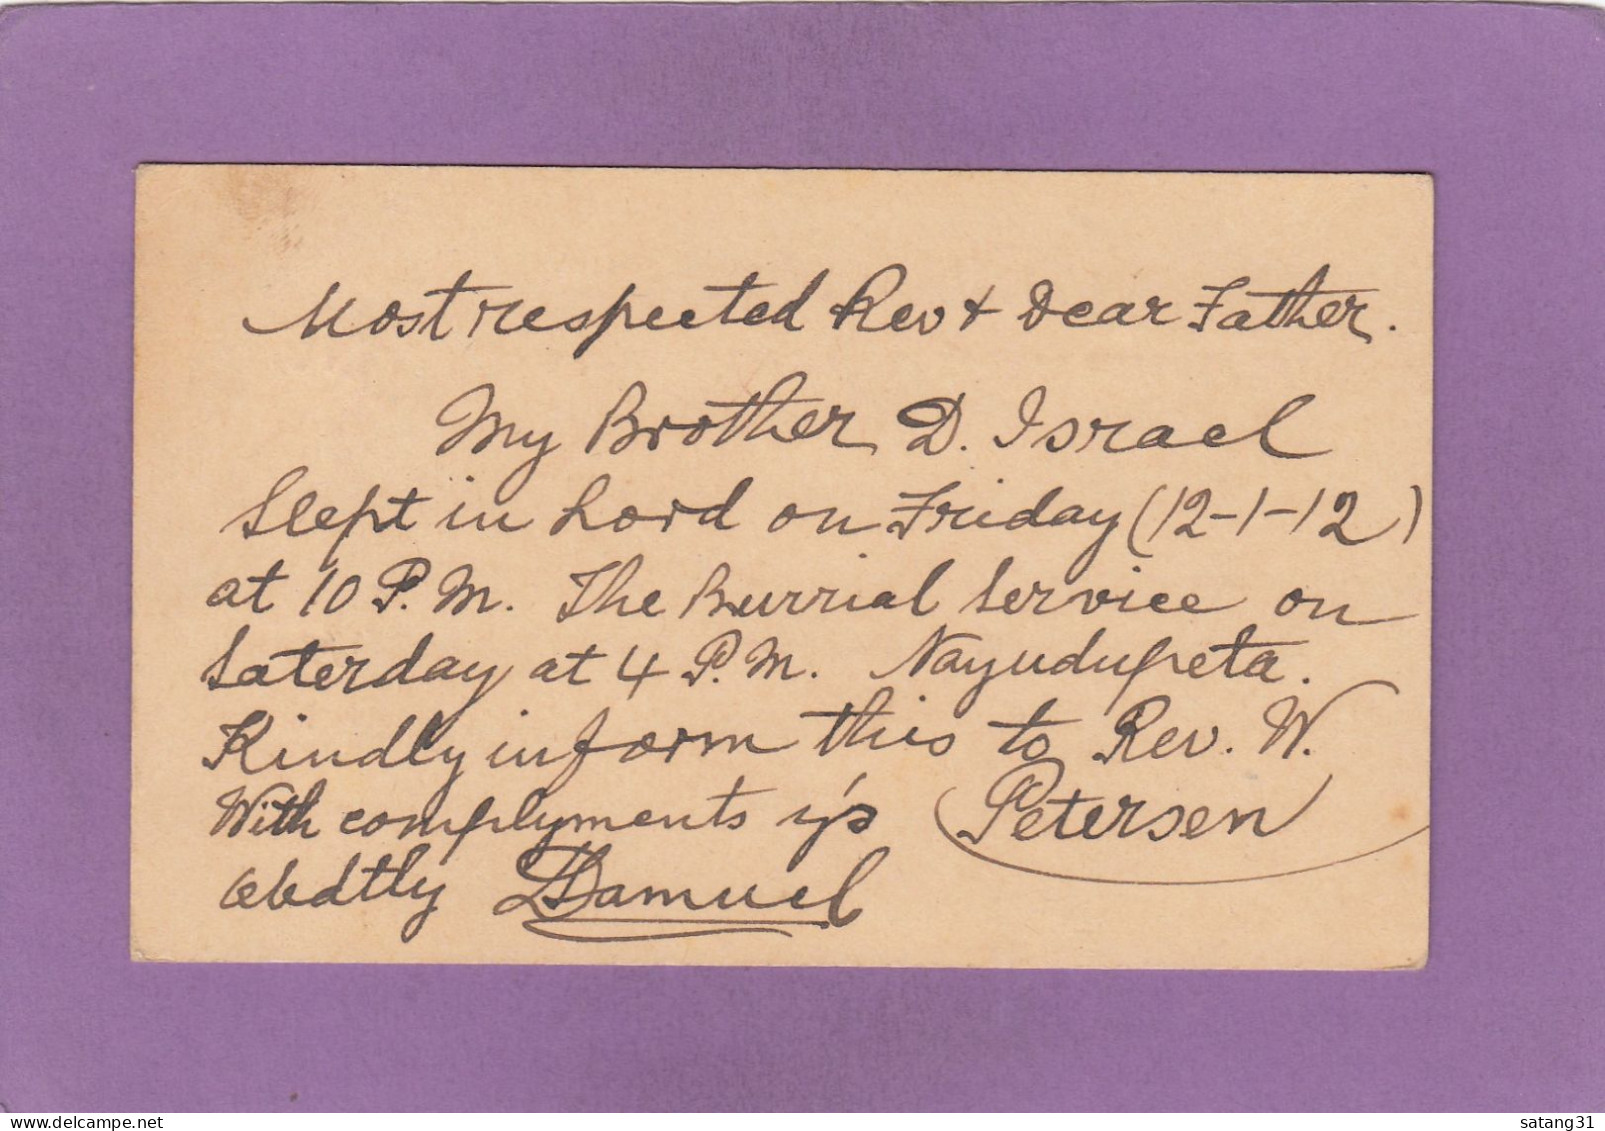 Most respected Rev & Dear Father.
My Brother D. Israel
Slept in Lord on Friday (12-1-12)
at 10 P.M. The Burrial Service on
Saterday at 4 P.M. Nayudupeta.
Kindly inform this to Rev. W.
With complyments y's Petersen
obdtly DSamuel
satang31